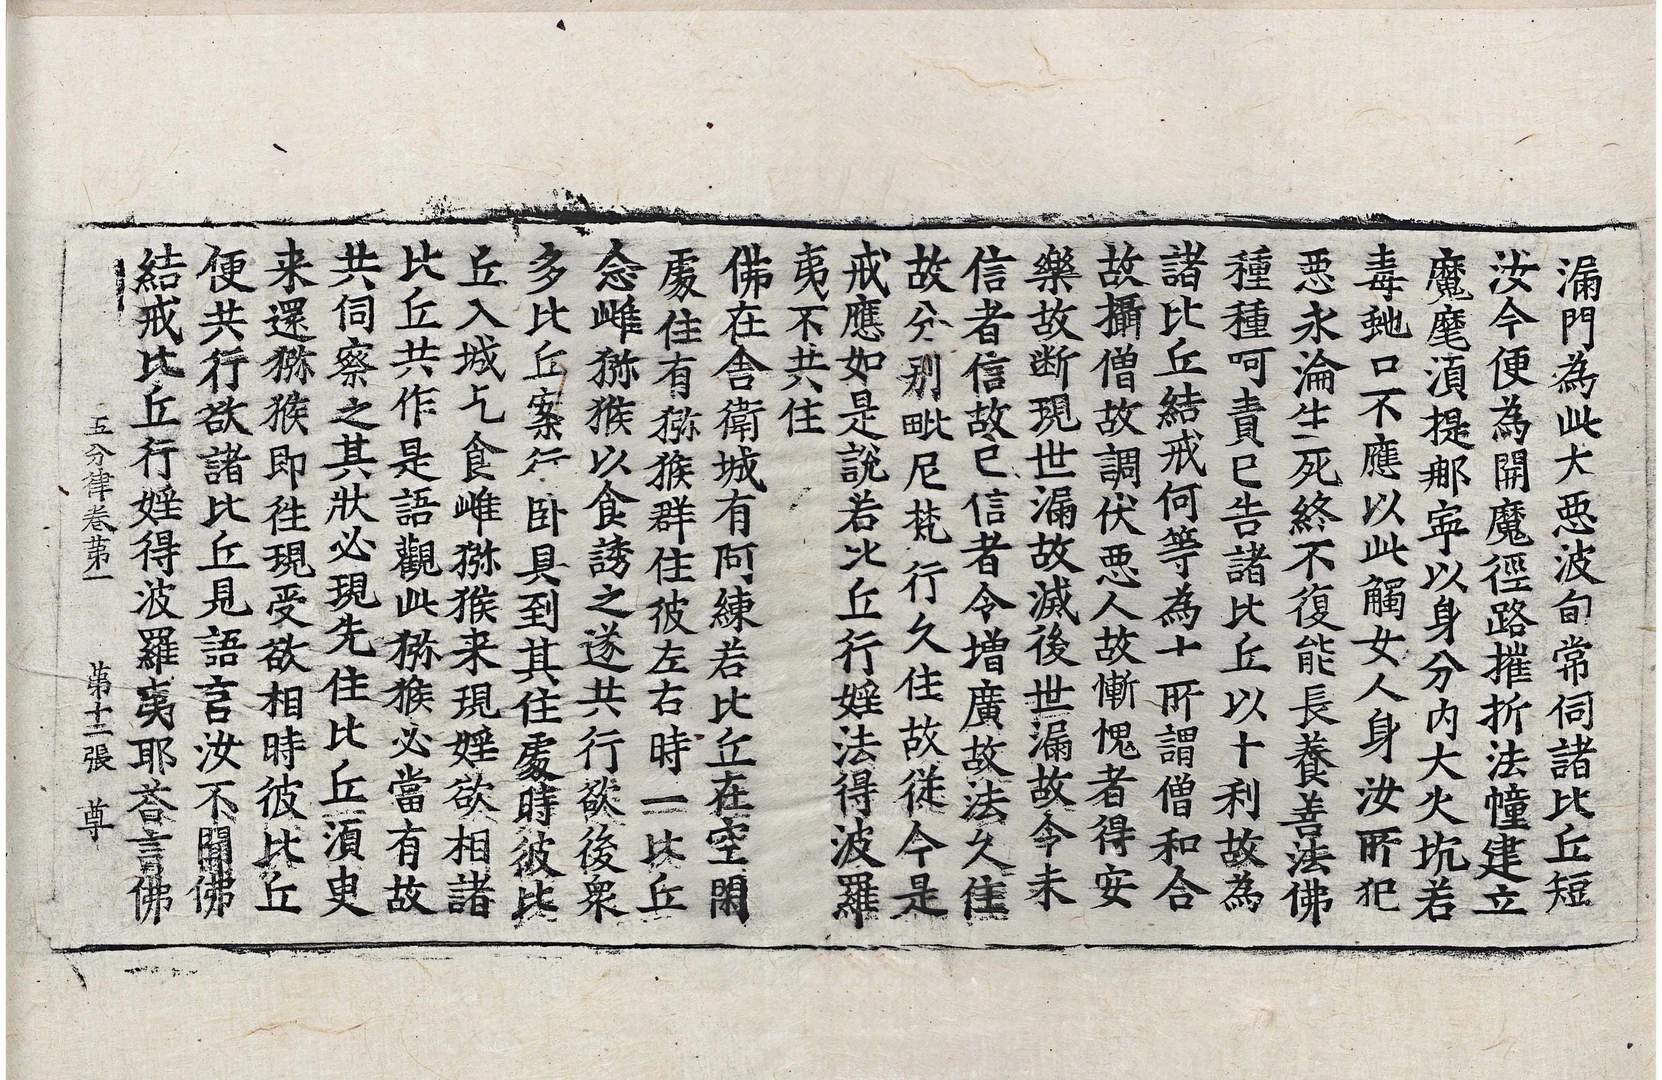 漏門為此大惡波旬常伺諸比丘短
汝今便為開魔徑路摧折法幢建立
魔麾湏提那寧以身分内大火坑若
毒虵口不應以此觸女人身汝所犯
惡永淪生死終不復能長養善法佛
種種呵責已告諸比丘以十利故為
諸比丘結戒何等為十所謂僧和合
故攝僧故調伏惡人故慚愧者得安
樂故断現世漏故滅後世漏故令未
信者信故已信者令増廣故法久住
故分别毗尼梵行久住故從今是
戒應如是說若比丘行婬法得波羅
夷不共住
佛在舎衛城有阿練若比丘在空閑
處住有猕猴群住彼左右時一比丘
念雌猕猴以食誘之遂共行欲後衆
多比丘案行卧具到其住處時彼比
丘入城乞食雌猕猴来現婬欲相諸
比丘共作是語觀此猕猴必當有故
共伺察之其狀必現先住比丘湏臾
来還猕猴即徃現受欲相時彼比丘
便共行欲諸比丘見語言汝不聞佛
結戒比丘行婬得波羅夷耶荅言佛
五分律卷苐一　苐十二張　尊